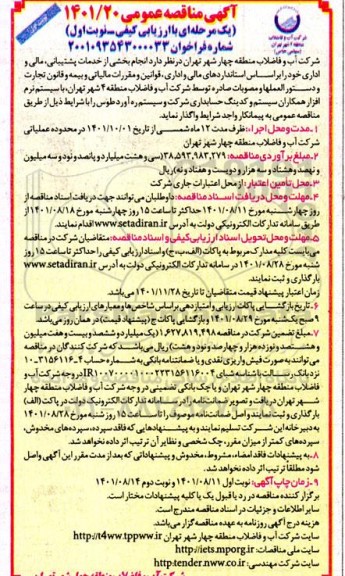 آگهی مناقصه عمومی ۱۴۰۱/۲۰
(یک مرحله‌ای با ارزیابی کیفی - نوبت اول)
شماره فراخوان ۲۰۰۱۰۹۳۵۴۳۰۰۰۰۳۳
شرکت آب و فاضلاب
منطقه ۴ شهر تهران
(سهامی خاص)
شرکت آب و فاضلاب منطقه چهار شهر تهران در نظر دارد انجام بخشی از خدمات پشتیبانی، مالی و
اداری خود را براساس استانداردهای مالی و اداری، قوانین و مقررات مالیاتی و بیمه و قانون تجارت
و دستور العملها و مصوبات صادره توسط شرکت آب و فاضلاب منطقه ۴ شهر تهران، با سیستم نرم
افزار همکاران سیستم و کدینگ حسابداری شرکت و سیستم ره آورد طوس را با شرایط ذیل از طریق
مناقصه عمومی به پیمانکار واجد شرایط واگذار نماید.
۱- مدت و محل اجراء: ظرف مدت ۱۲ ماه شمسی از تاریخ ۱۴۰۱/۱۰/۰۱ در محدوده عملیاتی
شرکت آب و فاضلاب منطقه چهار شهر تهران
۲- مبلغ برآوردی مناقصه: ۳۸,۵۹۳,۹۸۳,۲۷۹ (سی و هشت میلیارد و پانصد و نود و سه میلیون
و نهصد و هشتاد و سه هزار و دویست و هفتاد و نه) ریال
۳- محل تامین اعتبار: از محل اعتبارات جاری شرکت
۴- مهلت و محل دریافت اسناد مناقصه: داوطلبان می‌توانند جهت دریافت اسناد مناقصه از
روز چهارشنبه مورخ ۱۴۰۱/۰۸/۱۱ حداکثر تا ساعت ۱۵ روز چهارشنبه مورخ ۱۴۰۱/۰۸/۱۸ از
طریق سامانه تدارکات الکترونیکی دولت به آدرس www.setadiran.ir اقدام نمایند.
۵- مهلت و محل تحویل اسناد ارزیابی کیفی و اسناد مناقصه: متقاضیان شرکت در مناقصه
می‌بایست کلیه مدارک مربوط به پاکات (الف، ب، ج) و اسناد ارزیابی کیفی را حداکثر تا ساعت ۱۵ روز
شنبه مورخ ۱۴۰۱/۰۸/۲۸ در سامانه تدارکات الکترونیکی دولت به آدرس www.setadiran.ir
بارگذاری و ثبت نمایند.
زمان اعتبار پیشنهاد قیمت متقاضیان تا تاریخ ۱۴۰۱/۱۱/۲۸ می باشد.
۶- تاریخ بازگشایی پاکات: ارزیابی و امتیازدهی بر اساس شاخص‌ها و معیارهای ارزیابی کیفی در ساعت
۹ صبح یکشنبه مورخ ۱۴۰۱/۰۸/۲۹ و بازگشایی پاکات ج (پیشنهاد قیمت) در همان روز می باشد
۷- مبلغ تضمین شرکت در مناقصه ۱,۶۲۷,۸۱۹,۴۹۸ (یک میلیارد و ششصد و بیست و هفت میلیون
و هشتصد و نوزده هزار و چهارصد و نود و هشت) ریال می باشد که شرکت کنندگان در مناقصه
می توانند به صورت فیش واریزی نقدی و یا ضمانتنامه بانکی به شماره حساب
نزد بانک در وجه شرکت آب و
فاضلاب منطقه چهار شهر تهران و یا چک بانکی تضمینی در وجه شرکت آب و فاضلاب منطقه چهار
شهر تهران دریافت و تصویر ضمانت نامه را در سامانه تدارکات الکترونیک دولت در پاکت (الف)
بارگذاری و ثبت نمایند و اصل ضمانت نامه موصوف را تا ساعت ۱۵ روز شنبه مورخ ۱۴۰۱/۰۸/۲۸
به دبیرخانه این شرکت تسلیم نمایند و به پیشنهادهایی که فاقد سپرده، سپرده های مخدوش،
سپرده‌های کمتر از میزان مقرر، چک شخصی و نظایر آن ترتیب اثر داده نخواهد شد.
۸- به پیشنهادات فاقد امضاء، مشروط، مخدوش و پیشنهاداتی که بعد از مدت مقرر این آگهی واصل
شود مطلقا ترتیب اثر داده نخواهد شد.
۹- زمان چاپ آگهی: نوبت اول ۱۴۰۱/۰۸/۱۱ و نوبت دوم ۱۴۰۱/۰۸/۱۴
برگزار کننده مناقصه در رد یا قبول یک یا کلیه پیشنهادات مختار است.
سایر اطلاعات و جزئیات در اسناد مناقصه مندرج است.
هزینه درج آگهی روزنامه به عهده مناقصه گزار می‌باشد.
سایت شرکت آب و فاضلاب منطقه چهار شهر تهران http://t4ww.tppww.ir
سایت ملی مناقصات: http://iets.mporg.ir
سایت شرکت مهندسی: http:tender.nww.co.ir